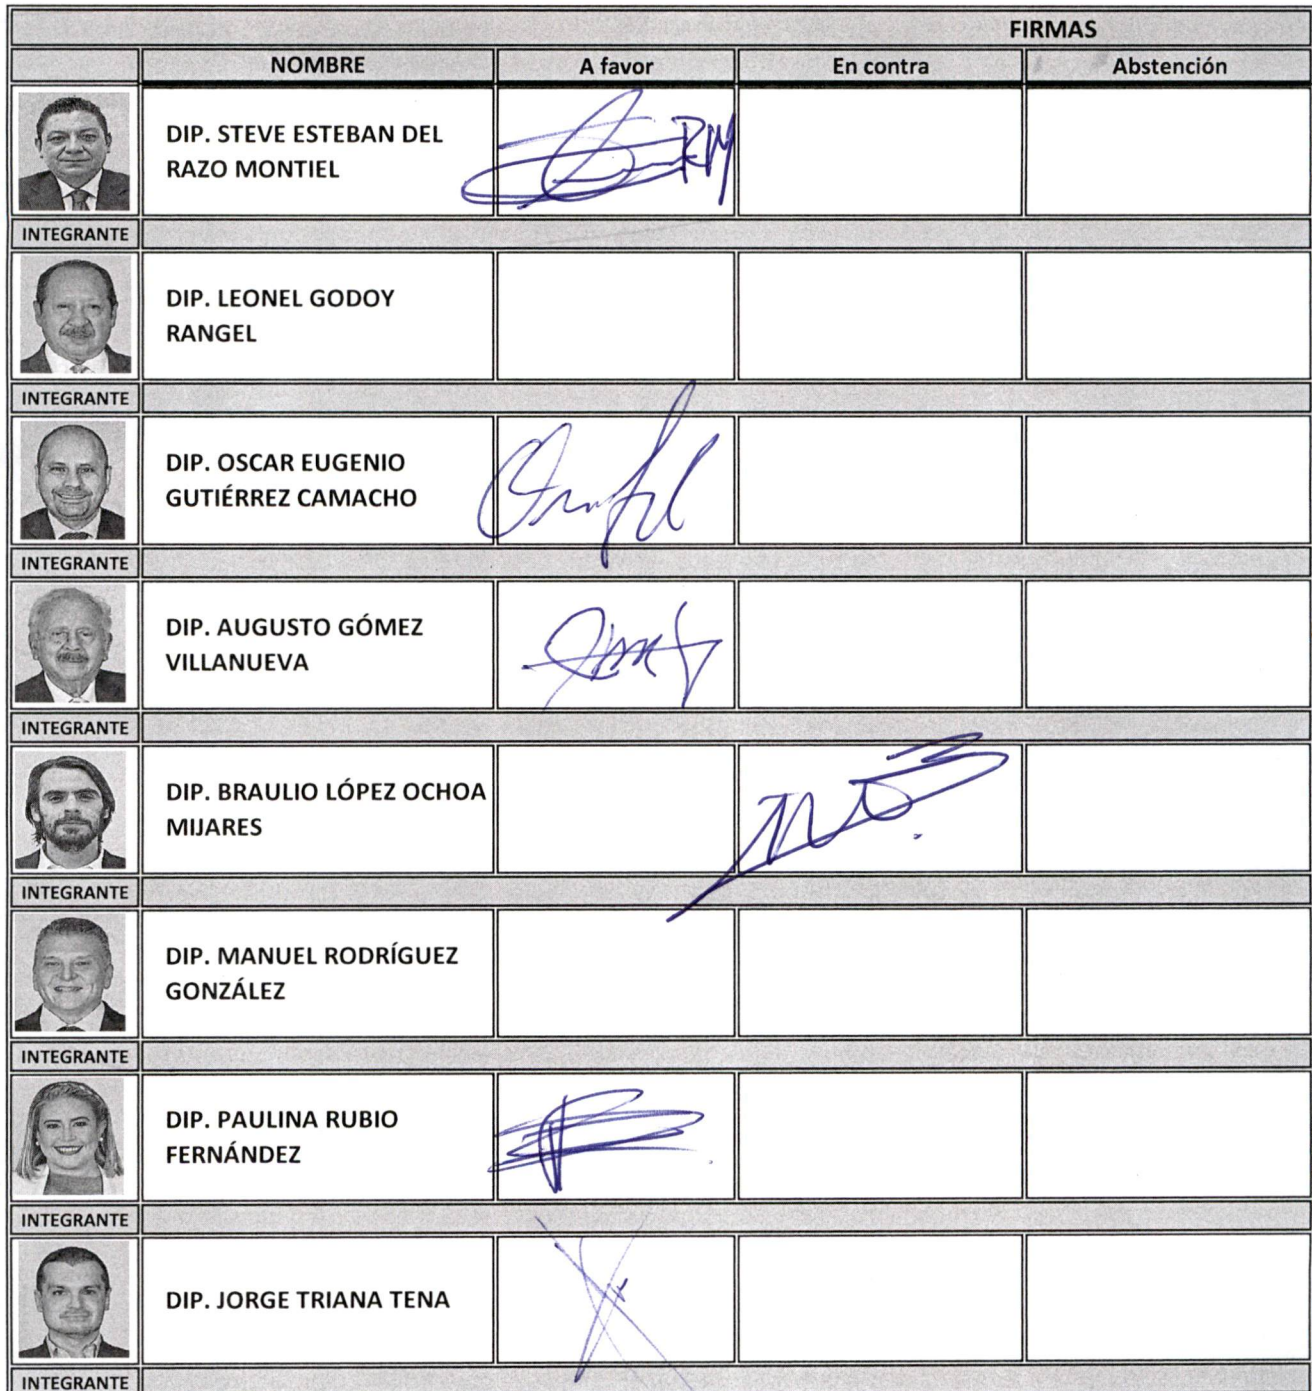 FIRMAS
NOMBRE A favor En contra Abstención
DIP. STEVE ESTEBAN DEL
RAZO MONTIEL
RM
INTEGRANTE
DIP. LEONEL GODOY
RANGEL
INTEGRANTE
DIP. OSCAR EUGENIO
GUTIÉRREZ CAMACHO
INTEGRANTE
DIP. AUGUSTO GÓMEZ
VILLANUEVA
INTEGRANTE
DIP. BRAULIO LÓPEZ OCHOA
MIJARES
INTEGRANTE
DIP. MANUEL RODRÍGUEZ
GONZÁLEZ
INTEGRANTE
DIP. PAULINA RUBIO
FERNÁNDEZ
INTEGRANTE
DIP. JORGE TRIANA TENA
INTEGRANTE